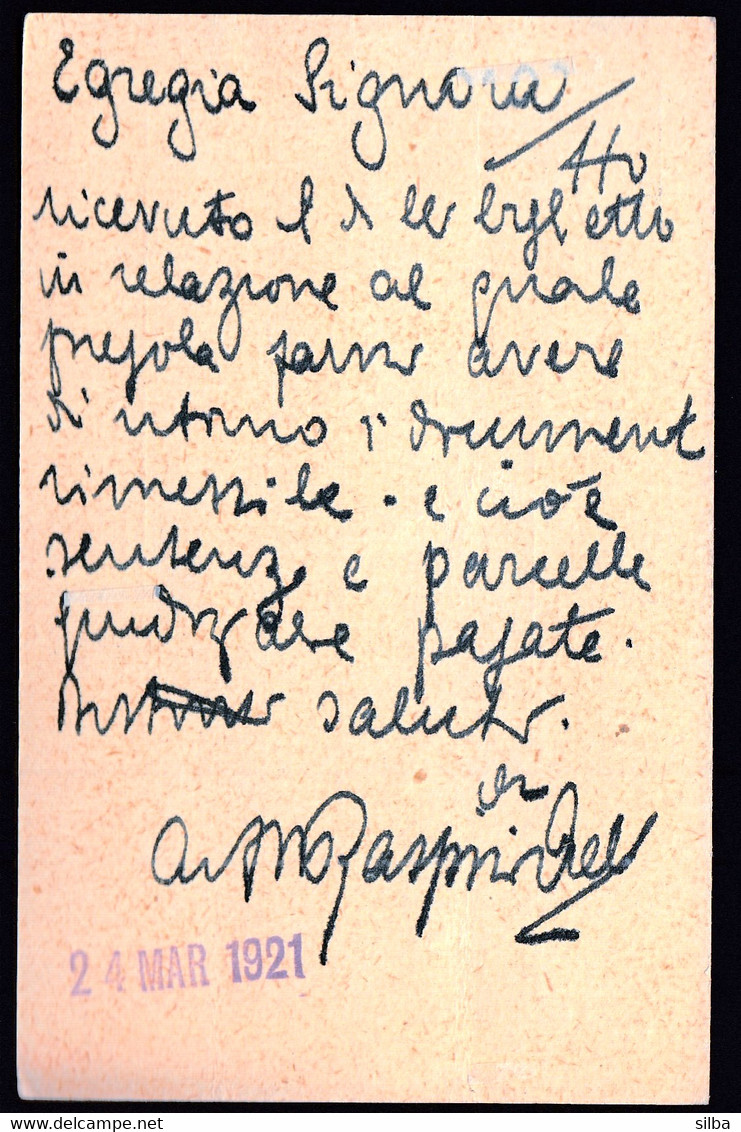 Egregia Signora
Ho
ricevuto il di lei biglietto
in relazione al quale
pregola farmi avere
di ritorno i documenti
rimessile - e cioè
sentenze e parcelle
giudiziarie pagate.
saluti.
24 MAR 1921
silba